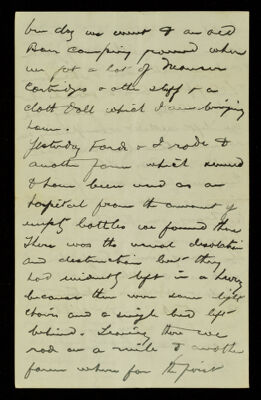 day we went to an old
Boer camping ground where
we got a lot of Mauser
Cartridges & other stuff & a
cloth doll which I am bringing
home.
Yesterday Ford & I rode to
another farm which seemed
to have been used as an
hospital from the amount of
empty bottles we found there
There was the usual desolation
and destruction but they
had evidently left in a hurry
because there were some light
chairs and a single bed left
behind. Leaving there we
rode on a mile to another
farm where for the first